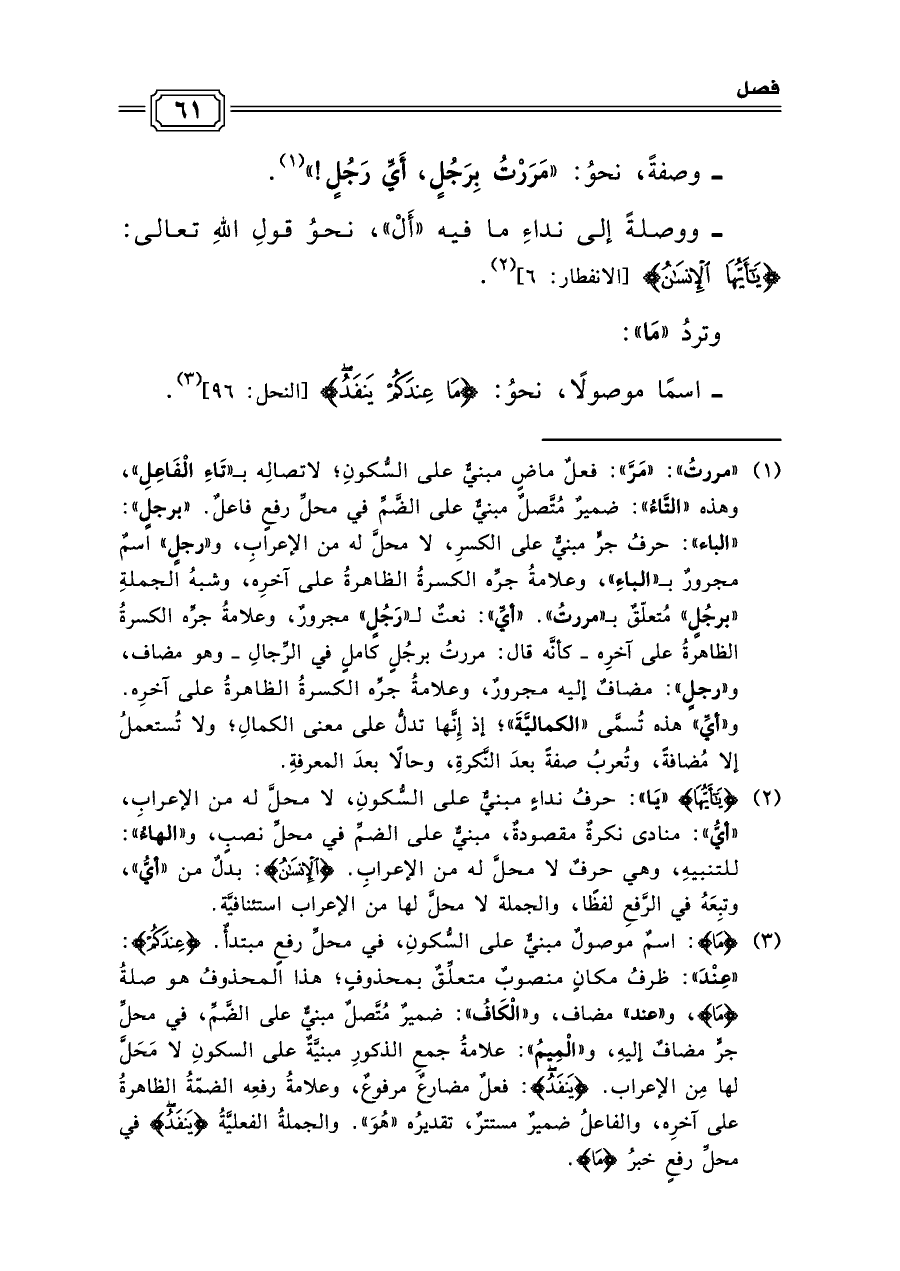 فصل
٦١
ـ وصفةً، نحوُ: «مَرَرْتُ بِرَجُلٍ، أَيِّ رَجُلٍ!»(١).
ـ ووصلةً إلى نداءِ ما فيه «أَلْ»، نحوُ قولِ اللهِ تعالى:
﴿يَٰٓأَيُّهَا ٱلْإِنسَٰنُ﴾ [الانفطار: ٦](٢).
وتردُ «مَا»:
ـ اسمًا موصولًا، نحوُ: ﴿مَا عِندَكُمْ يَنفَدُ ۖ﴾ [النحل: ٩٦](٣).
(١) «مررتُ»: «مَرَّ»: فعلٌ ماضٍ مبنيٌّ على السُّكونِ؛ لاتصالِه بـ«تَاءِ الْفَاعِلِ»،
وهذه «التَّاءُ»: ضميرٌ مُتَّصلٌ مبنيٌّ على الضَّمِّ في محلِّ رفعٍ فاعلٌ. «برجلٍ»:
«الباء»: حرفُ جرٍّ مبنيٌّ على الكسرِ، لا محلَّ له من الإعرابِ، و«رجلٍ» اسمٌ
مجرورٌ بـ«الباءِ»، وعلامةُ جرِّه الكسرةُ الظاهرةُ على آخرِه، وشبهُ الجملةِ
«برجُلٍ» مُتعلّقٌ بـ«مررتُ». «أيِّ»: نعتٌ لـ«رَجُلٍ» مجرورٌ، وعلامةُ جرِّه الكسرةُ
الظاهرةُ على آخرِه ـ كأنَّه قال: مررتُ برجُلٍ كاملٍ في الرِّجالِ ـ وهو مضاف،
و«رجلٍ»: مضافٌ إليه مجرورٌ، وعلامةُ جرِّه الكسرةُ الظاهرةُ على آخرِه.
و«أيِّ» هذه تُسمَّى «الكماليَّةَ»؛ إذ إنَّها تدلُّ على معنى الكمالِ؛ ولا تُستعملُ
إلا مُضافةً، وتُعربُ صفةً بعدَ النَّكرةِ، وحالًا بعدَ المعرفةِ.
(٢) ﴿يَٰٓأَيُّهَا﴾ «يَا»: حرفُ نداءٍ مبنيٌّ على السُّكونِ، لا محلَّ له من الإعرابِ،
«أيُّ»: منادى نكرةٌ مقصودةٌ، مبنيٌّ على الضمِّ في محلِّ نصبٍ، و«الهاءُ»:
للتنبيهِ، وهي حرفٌ لا محلَّ له من الإعرابِ. ﴿ٱلْإِنسَٰنُ﴾: بدلٌ من «أيُّ»،
وتبِعَهُ في الرَّفعِ لفظًا، والجملة لا محلَّ لها من الإعراب استئنافيَّة.
(٣) ﴿مَا﴾: اسمٌ موصولٌ مبنيٌّ على السُّكونِ، في محلِّ رفعٍ مبتدأٌ. ﴿عِندَكُمْ﴾:
«عِنْدَ»: ظرفُ مكانٍ منصوبٌ متعلِّقٌ بمحذوفٍ؛ هذا المحذوفُ هو صلةُ
﴿مَا﴾، و«عند» مضاف، و«الْكَافُ»: ضميرٌ مُتَّصلٌ مبنيٌّ على الضَّمِّ، في محلِّ
جرٍّ مضافٌ إليهِ، و«الْمِيمُ»: علامةُ جمعِ الذكورِ مبنيَّةٌ على السكونِ لا مَحَلَّ
لها مِن الإعراب. ﴿يَنفَدُ ۖ﴾: فعلٌ مضارعٌ مرفوعٌ، وعلامةُ رفعِه الضمّةُ الظاهرةُ
على آخرِه، والفاعلُ ضميرٌ مستترٌ، تقديرُه «هُوَ». والجملةُ الفعليَّةُ ﴿يَنفَدُ ۖ﴾ في
محلِّ رفعٍ خبرُ ﴿مَا﴾.